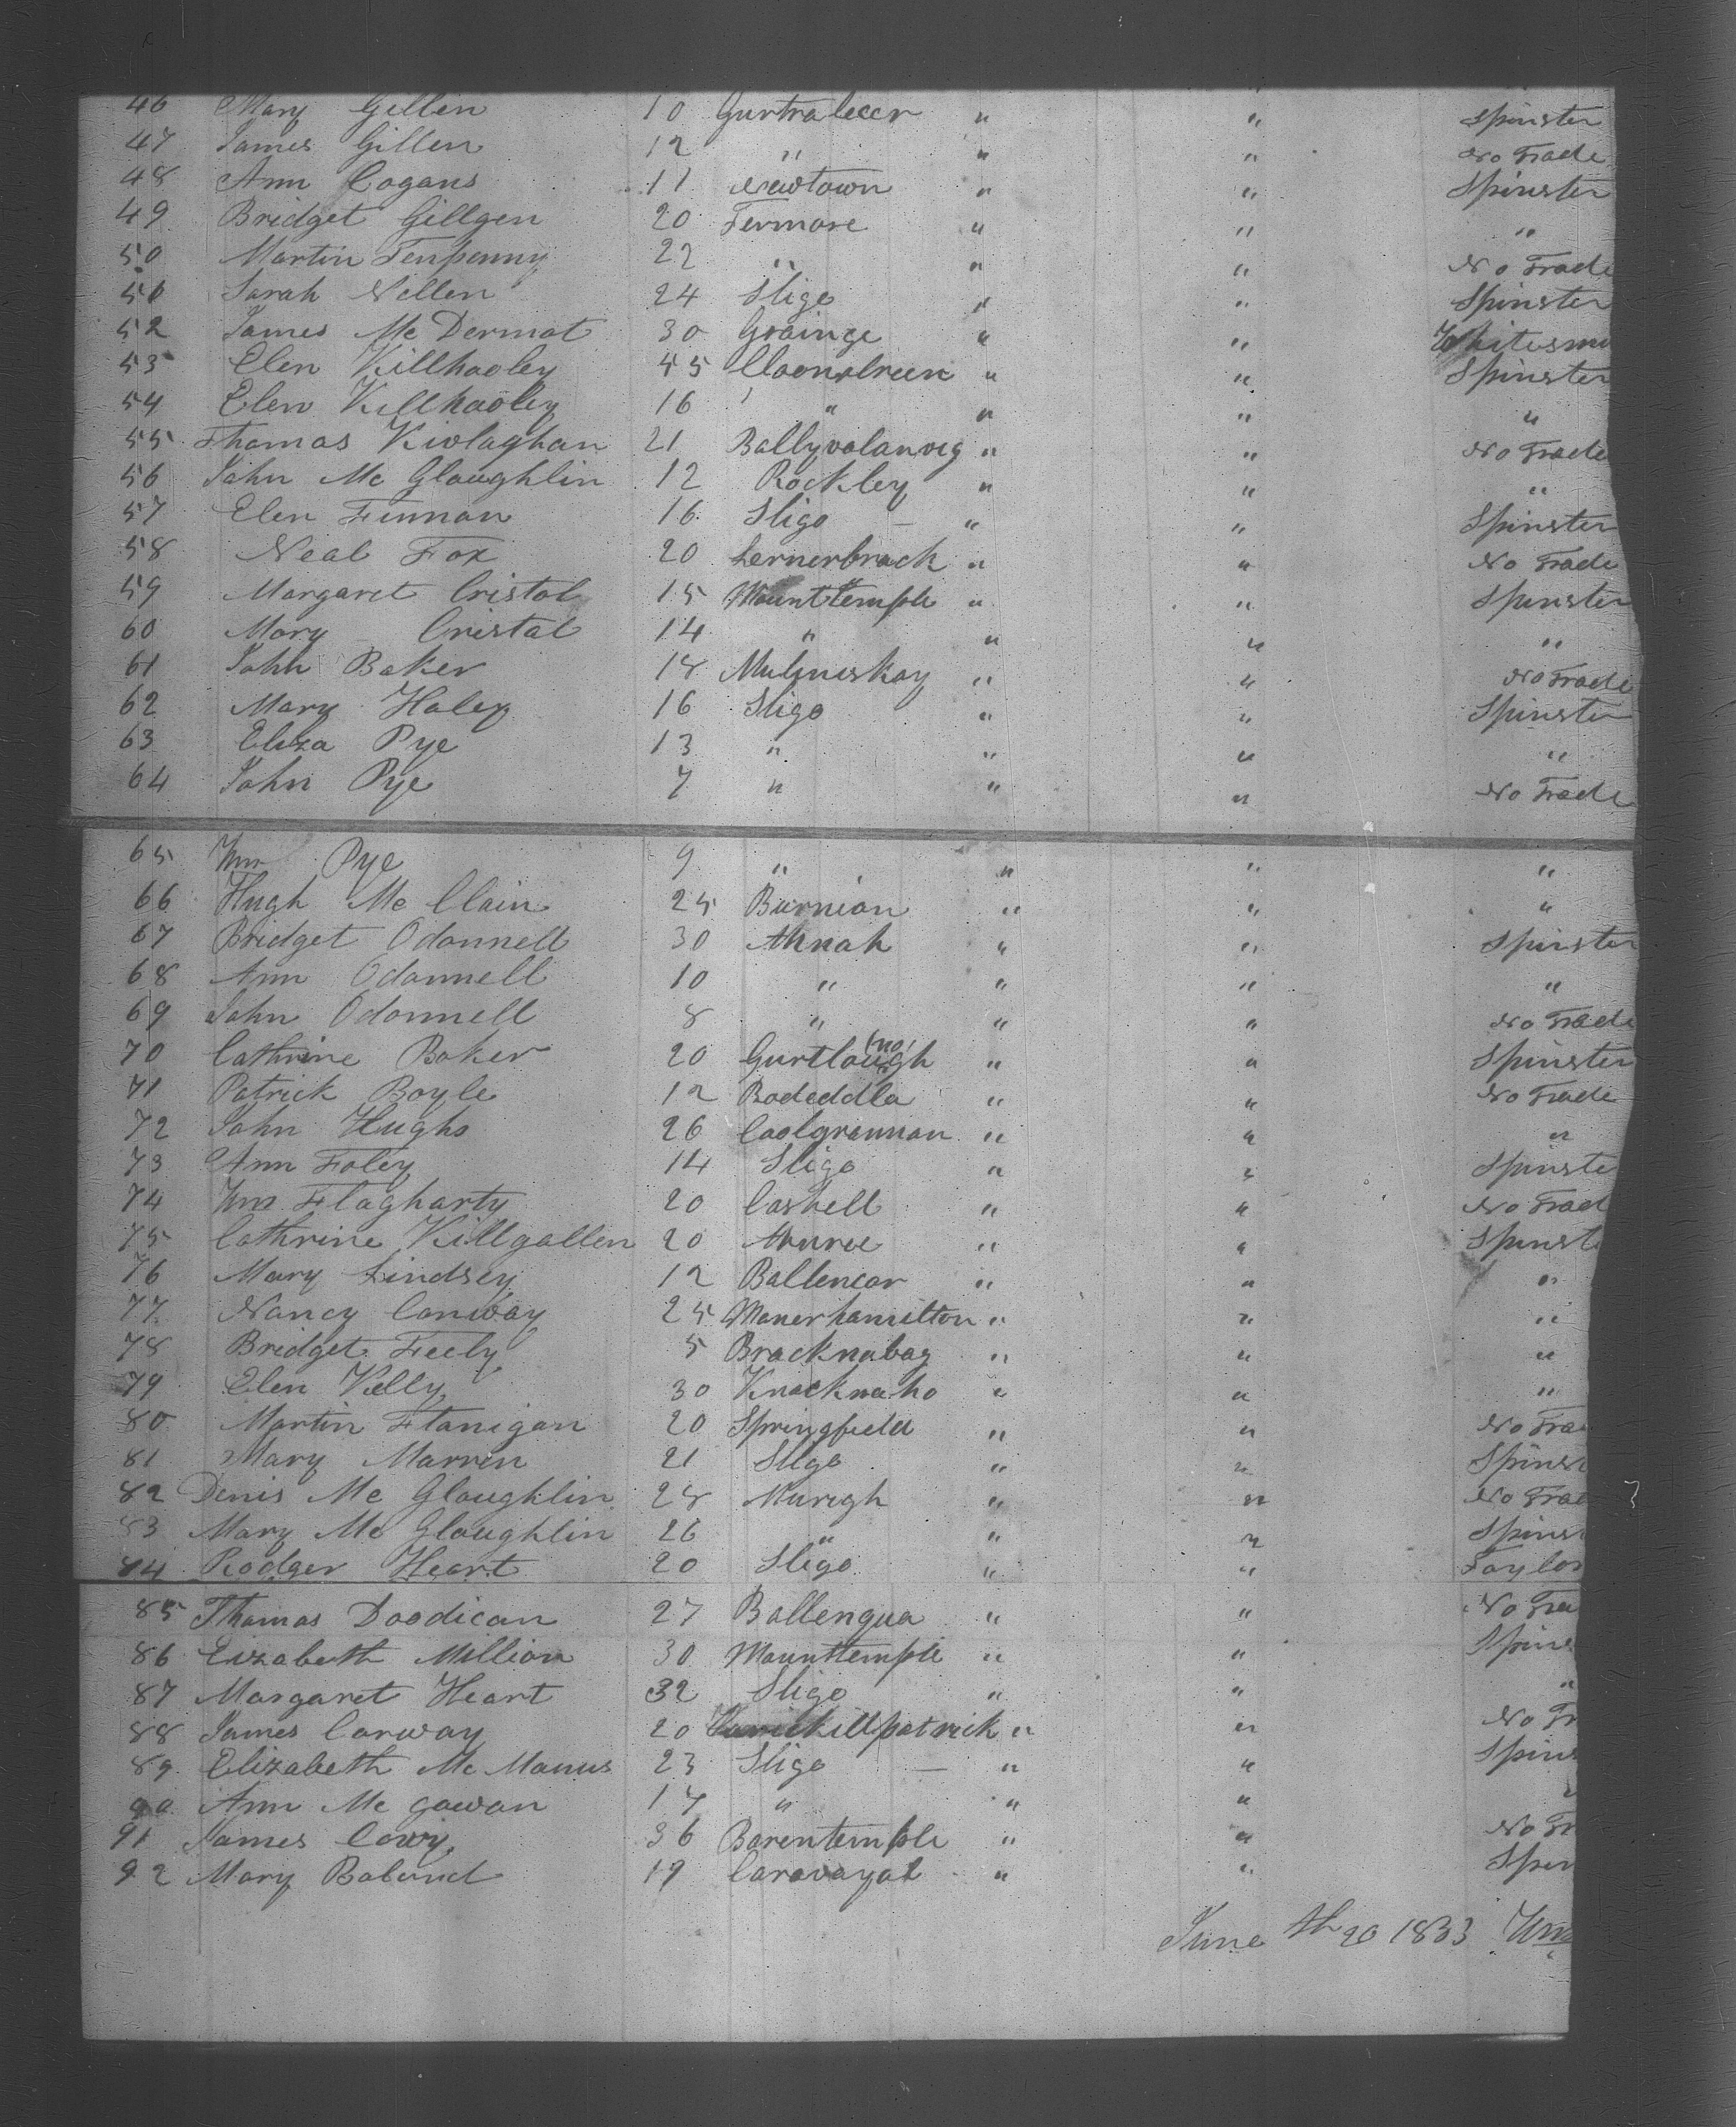 46 Mary Gillen 10 Gurtraleear " " Spinster
47 James Gillen 12 " " " No Trade
48 Ann Cogans 11 Newtown " " Spinster
49 Bridget Gillgen 20 Fermore " " "
50 Martin Tenpenny 22 " " " No Trade
51 Sarah Nellen 24 Sligo " " Spinster
52 James Mc Dermot 30 Grainge " " Whitesmi
53 Elen Killhooley 45 " " Spinster
54 Elen Killhooley 16 " " " "
55 Thomas 21 " " No Trade
56 John Mc Gloughlin 12 Rockley " " "
57 Elen Finnan 16 Sligo — " " Spinster
58 Neal Fox 20 Lernerbrack " " No Trade
59 Margaret Cristal 15 Mounttemple " " Spinster
60 Mary Cristal 14 " " " "
61 John Baker 18 " " No Trade
62 Mary Haley 16 Sligo " " Spinster
63 Eliza Pye 13 " " " "
64 John Pye 7 " " " No Trade
65 Wm Pye 9 " " " "
66 Hugh Mc Clain 25 Burnion " " "
67 Bridget Odonnell 30 Annah " " Spinster
68 Ann Odonnell 10 " " " "
69 John Odonnell 8 " " " No Trade
70 Cathrine Baker 20 Gurtlough " " Spinster
71 Patrick Boyle 12 Bodeddla " " No Trade
72 John Hughs 26 Coolgrannan " " "
73 Ann Foley 14 Sligo " " Spinste
74 Wm Flagharty 20 Cashell " " No Trad
75 Cathrine Killgallen 20 " " Spinst
76 Mary Lindsey 12 Ballencar " " "
77 Nancy Conway 25 Manerhamilton " " "
78 Bridget Feely 5 Bracknabag " " "
79 Elen Kelly 30 Knocknaho " " "
80 Martin Flanigan 20 Springfield " " No Tra
81 Mary Marren 21 Sligo " " Spins
82 Denis Mc Gloughlin 28 Murigh " " No Trad
83 Mary Mc Gloughlin 26 " " " Spins
84 Rodger Heart 20 Sligo " " Taylor
85 Thomas Doodican 27 Ballengua " " No Tra
86 Elizabeth Million 30 Mounttemple " " Spins
87 Margaret Heart 32 Sligo " " "
88 James Conway 20 " " No Tr
89 Elizabeth Mc Manus 23 Sligo — " " Spins
90 Ann Mc gowan 17 " " "
91 James 36 Barentemple " " No Tr
92 Mary Boland 19 " " Spin
June th 20 1833 Wm